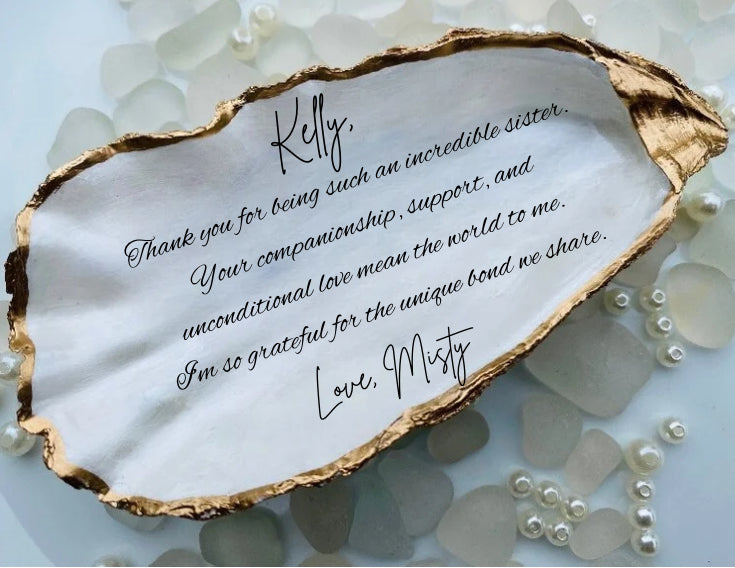 Kelly,
Thank you for being such an incredible sister.
Your companionship, support, and
unconditional love mean the world to me.
I'm so grateful for the unique bond we share.
Love, Misty